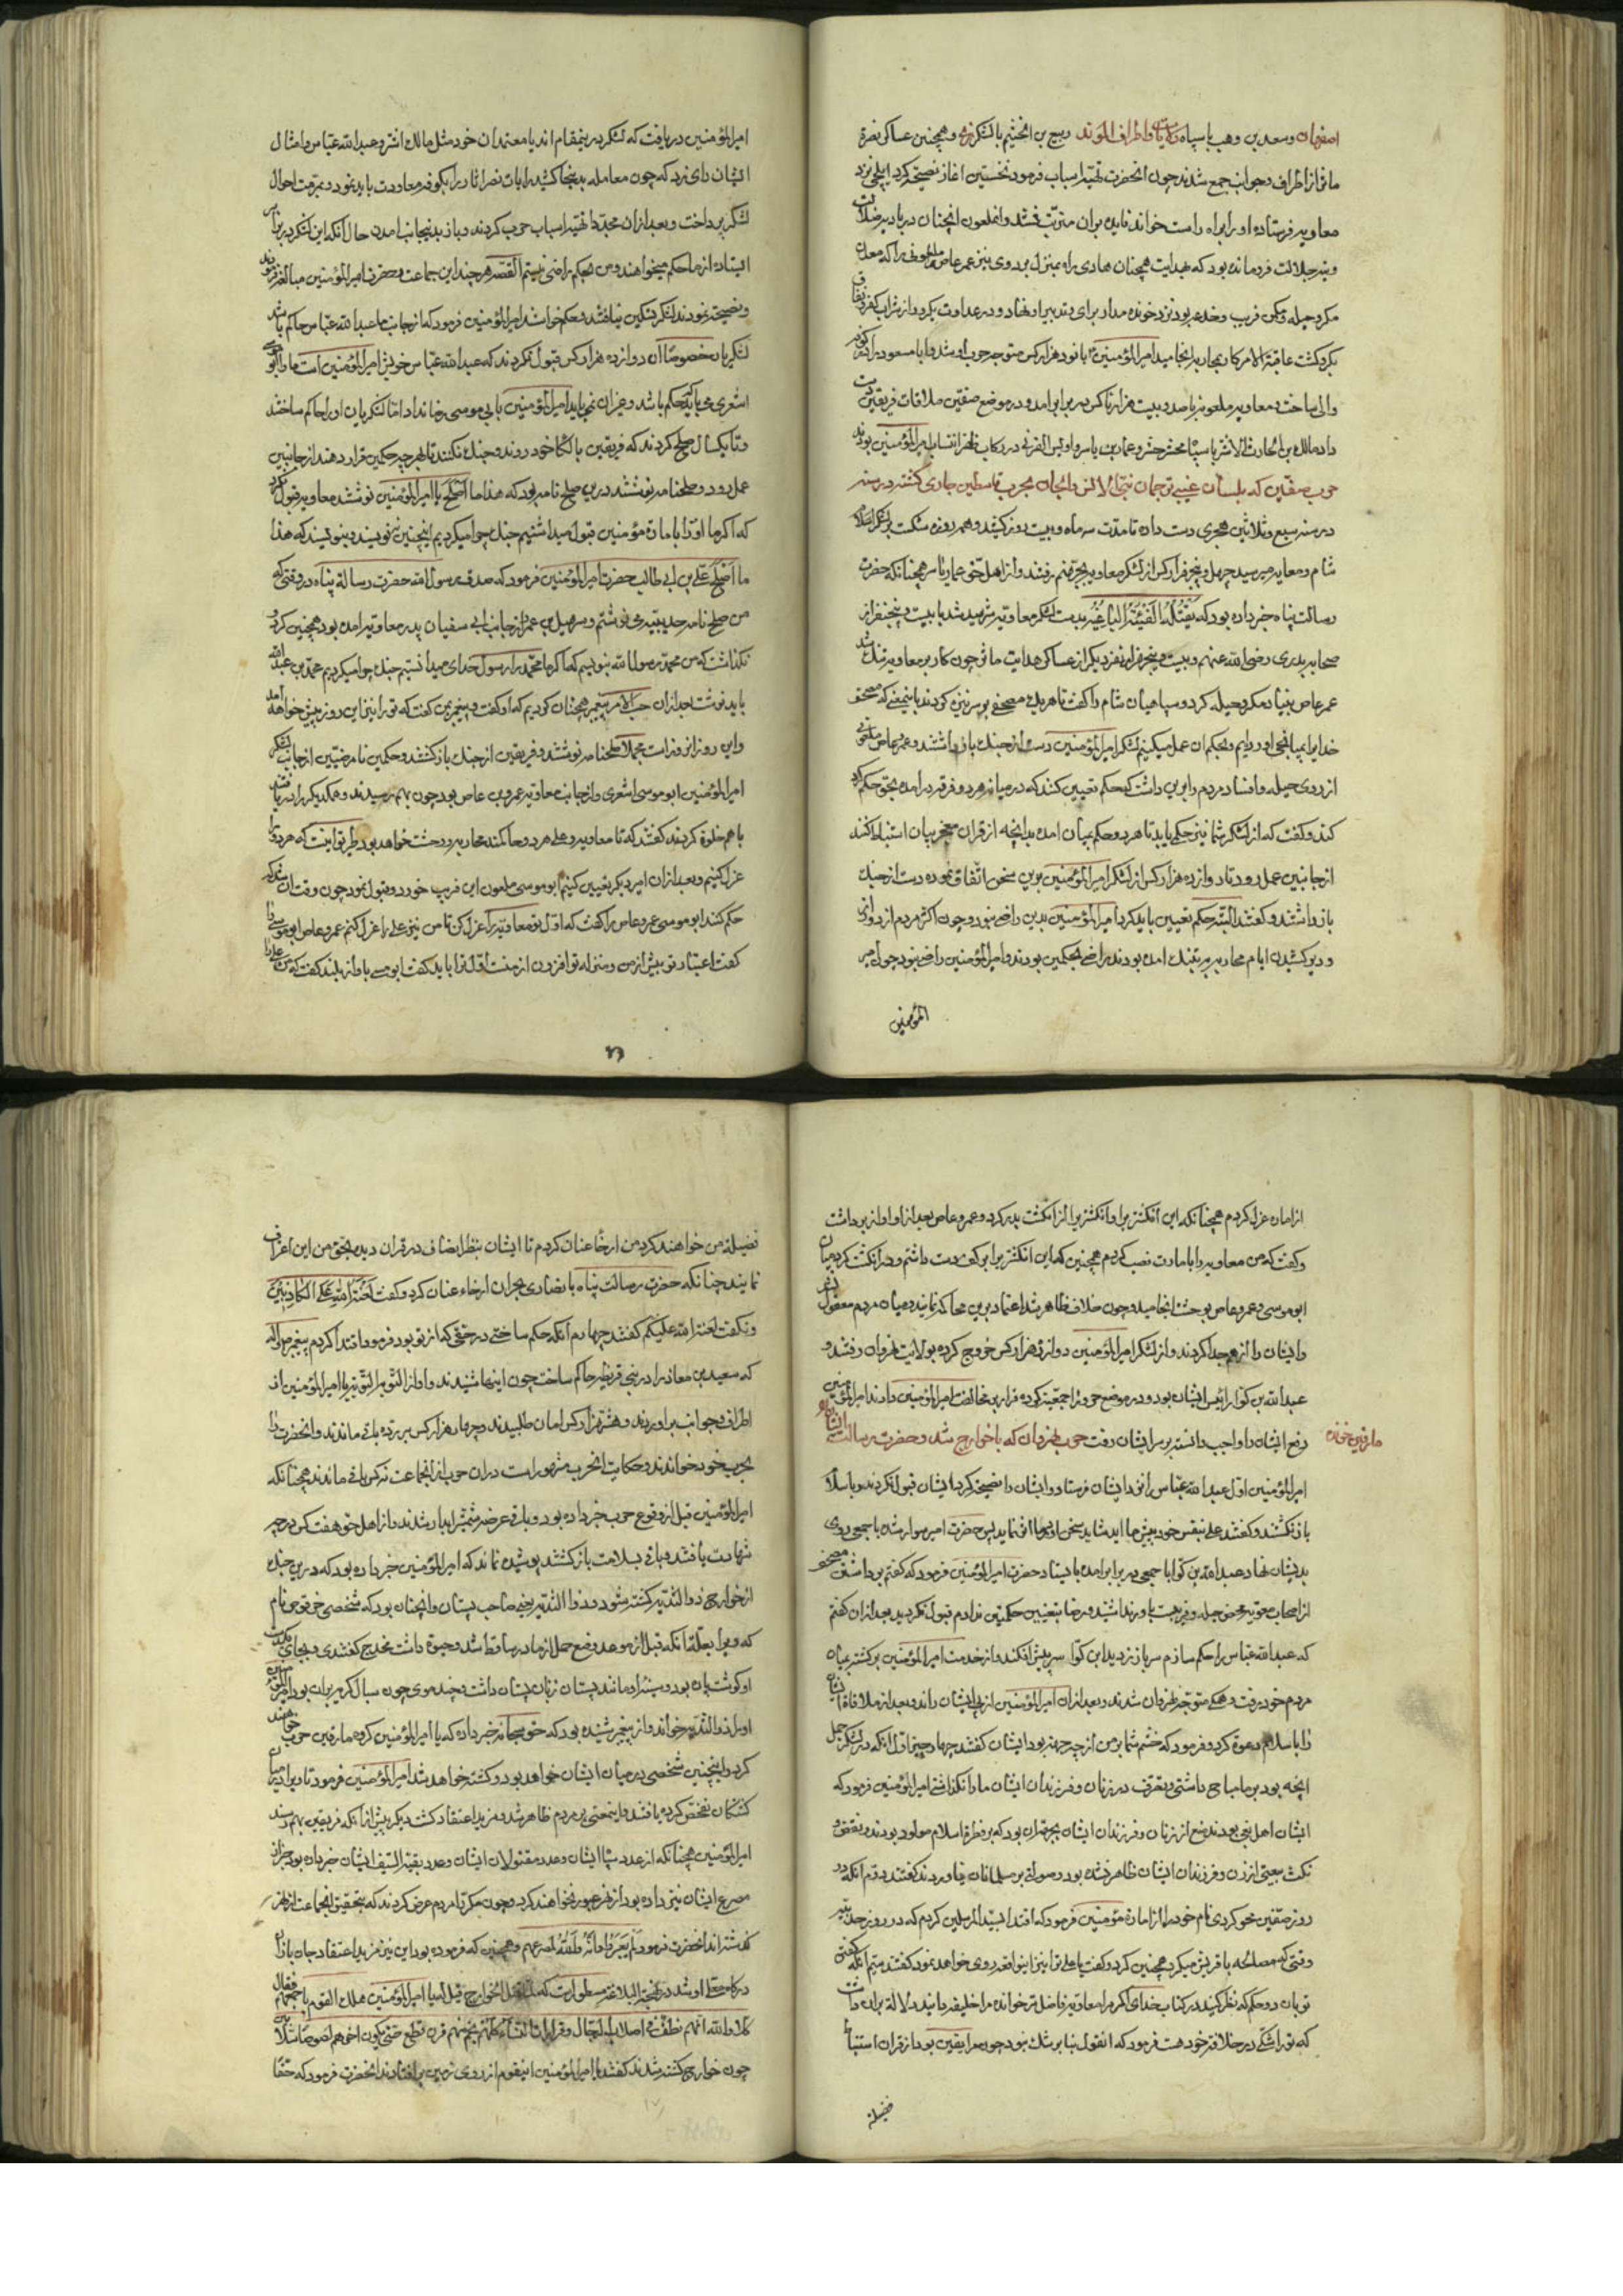 اصفهان وسعد بن وهب با سپاه واطراف الموند ربیع بن الخثیم با لشکر ری وهمچنین عساکر نصرة
ماثر از اطراف وجوانب جمع شدند چون انحضرت تهیه اسباب فرمود نخستین اغاز نصیحة کرد ایلچی نزد
معاویه فرستاد او را براه راست خواند فایده بران مترتب نشد وانملعون انچنان در بادیه ضلالت
وتیه جلالت فرو مانده بود که بهدایت همچنان هادی راه بمنزل برد وی نیز عمرعاص ملعونی را که معدن
مکر وحیله ومکمن فریب وخدعه بود نزد خود خوانده مدار برای وتدبیر او نهاد و در عداوت
بکردکشت عاقبة الامر کار بمحاربه انجامید امیرالمؤمنین با نود هزار کس متوجه حرب او شد وابا مسعود را در کوفه
والی ساخت ومعاویه ملعون با صد وبیست هزار ناکس در برابر امد و در موضع صفین ملاقات فریقین دست
داد مالک بن الحارث الاشتر با سپاه محشر حشر وعمار بن یاسر واویس القرنی در رکاب ظفر انتساب امیرالمؤمنین بودند
حرب صفین که بلسان غیبی ترجمان نبی قاسطین جاری کشته در سنه
در سنه سبع وثلاثین هجری دست داده تا مدت سه ماه وبیست روز کشید وهر روزه شکست بر لشکر اهل
شام ومعاویه میرسید چهل وپنجهزار کس از لشکر معاویه بجهنم رفتند واز اهل حق عمار یاسر همچنانکه حضرت
رسالت پناه خبر داده بود که یقتله الفئة الباغیة بدست لشکر معاویه شهید شد با بیست وپنج نفر از
صحابه بدری رضی الله عنهم وبیست وپنجهزار نفر دیکر از عساکر هدایت ماثر چون کار بر معاویه تنک شد
عمر عاص بنیاد مکر وحیله کرد وسپاهیان شام را کفت تا هر یک مصحفی بر سر نیزه کردند باینمعنی که مصحف
خدایرا بمیانجی اوردیم وبحکم ان عمل میکنیم لشکر امیرالمؤمنین دست از جنک باز داشتند وعمر عاص
از روی حیله وافساد مردم را برین داشت که حکم تعیین کنند که در میانه هر دو فرقه در امده بحق حکم کرد
کند وکفت که از لشکر شما نیز حکمی باید تا هر دو حکم بمیان امده بدانچه از قران مخبر بیان استنباط کنند
از جانبین عمل رود تا دوازده هزار کس از لشکر امیرالمؤمنین برین سخن اتفاق نموده دست از جنک
باز داشتند وکفتند البته حکم تعیین باید کرد امیرالمؤمنین بدین راضی نبود وچون اکثر مردم از
ودیر کشیدن ایام محاربه بتنک امده بودند راضی بحکمین بودند وامیرالمؤمنین راضی نبود چون امیر
المؤمنین
امیرالمؤمنین دریافت که لشکر در ینمقام اند با معتمدان خود مثل مالک اشتر وعبدالله عباس وامثال
ایشان رای زد که چون معامله بدینجا کشید رایات نصر اثار را بکوفه معاودت باید نمود وبمرمت احوال
لشکر پرداخت وبعد ازان مجددا تهیه اسباب حرب کردند وباز بدینجانب امدن حال انکه این لشکر
ایستاده از ما حکم میخواهند ومن بحکم راضی نیستم القصه هر چند این جماعت وحضرت امیرالمؤمنین مبالغه فرمودند
ونصیحة نمودند لشکر تسکین نیافتند وحکم خواستند امیرالمؤمنین فرمود که از جانب ما عبدالله عباس حاکم باشد
لشکریان خصوصا ان دوازده هزار کس قبول نکردند که عبدالله عباس خویش امیرالمؤمنین است ما را ابوموسی
اشعری می باید که حکم باشد وغیر ان نمی باید امیرالمؤمنین بابی موسی رضا نداد اما لشکریان او را حاکم ساختند
وتا یکسال صلح کردند که فریقین با لکای خود روند وجنک نکنند تا بهرچه حکمین قرار دهند از جانبین
عمل رود وصلحنامه نوشتند درین صلح نامه بود که هذا ما اصلح یا امیرالمؤمنین نوشتند معاویه قبول نکرد
که اکر ما او را بامارة مؤمنین قبول میداشتیم جنک چرا میکردیم اینچنین ننویسند بنویسند که هذا
ما اصلح علی بن ابی طالب حضرت امیرالمؤمنین فرمود که صدق رسول الله حضرت رسالة پناه در وقتی که
من صلح نامه حدیبیه می نوشتم وسهیل بن عمرو از جانب ابی سفیان پدر معاویه امده بود همچنین کرد و
نکذاشت که من محمد رسول الله بنویسم که اکر ما محمد را رسول خدای میدانستیم جنک چرا میکردیم محمد بن عبدالله
باید نوشت بعد ازان حسب الامر پیغمبر همچنان کردیم که او کفت وپیغمبر بمن کفت که ترا نیز این روز پیش خواهد امد
واین روز انروز است مجملا صلحنامه نوشتند وفریقین از جنک باز کشتند وحکمین نامرضیین از جانب لشکر
امیرالمؤمنین ابو موسی اشعری واز جانب معاویه عمرو بن عاص بود چون بهم رسیدند وهمدیکر را دریافتند
با هم خلوة کردند کفتند که تا معاویه وعلی هر دو حاکمند محاربه ووحشت خواهد بود طریق اینست که هر دو را
عزل کنیم وبعد ازان امیر دیکر تعیین کنیم ابو موسی ملعون این فریب خورد وقبول نمود چون وقت ان شد که
حکم کنند ابو موسی عمرو عاص را کفت که اول تو معاویه را عزل کن تا من نیز علی را عزل کنم عمرو عاص ابوموسی را
کفت اعتبار تو بیش از من ومنزله تو افزون از منست اول ترا باید کفت ابوموسی باواز بلند کفت که من علی را
از امارة عزل کردم همچنانکه این انکشترین را وانکشترین را از انکشت بدر کرد وعمرو عاص بعد از او اواز برداشت
وکفت که من معاویه را بامارت نصب کردم همچنین که این انکشترین را بر کف دست داشتم ودر انکشت کردم میان
ابو موسی وعمرو عاص بوحشت انجامید وچون خلاف ظاهر شد اعتماد برین محاکمه نماند ومیان مردم
وایشان را از هم جدا کردند واز لشکر امیرالمؤمنین دوازده هزار کس خروج کرده بولایت نهروان رفتند و
عبدالله بن کوا رئیس ایشان بود ودر موضع حرورا جمعیة کرده قرار بر مخالفت امیرالمؤمنین دادند امیرالمؤمنین
رفع ایشان را واجب دانسته بر سر ایشان رفت حرب نهروان که با خوارج شد وحضرت رسالت ایشانرا
مارقین خوانده
امیرالمؤمنین اول عبدالله عباس را نزد ایشان فرستاد وایشان را نصیحة کرد ایشان قبول نکردند وباسلام
باز نکشتند وکفتند علی بنفس خود پیش ما اید شاید سخن او بما اثر نماید پس حضرت امیر سوار شده با جمعی روی
بدیشان نهاد وعبدالله بن کوا با جمعی در برابر امده بایستاد حضرت امیرالمؤمنین فرمود که کفتم برداشتن مصحف
از اصحاب معویه محض حیله وفریبست باور نداشتید ورضا بتعیین حکمین ندادم قبول نکردید بعد ازان کفتم
که عبدالله عباس را حکم سازم سر باز زدید ابن کوا سر پیش افکند واز خدمت امیرالمؤمنین برکشته بمیان
مردم خود رفت وهمه متوجه نهروان شدند وبعد ازان امیرالمؤمنین از پی ایشان راند وبعد از ملاقاة ایشان
را باسلام دعوة کرد وفرمود که خشم شما بر من از چه جهة بود ایشان کفتند چهار چیز اول انکه در لشکر جمل
انچه بود بر ما مباح داشتی وتصرف در زنان وفرزندان ایشان ما را نکذاشتی امیرالمؤمنین فرمود که
ایشان اهل بغی بودند منع از زنان وفرزندان ایشان بجهة ان بود که بر فطرة اسلام مولود بودند ونقض و
نکث بیعتی از زن وفرزندان ایشان ظاهر نشده بود وصولة بر مسلمانان نیاوردند کفتند دوم انکه در
روز صفین محو کردی نام خود را از امارة مؤمنین فرمود که اقتدا بسید المرسلین کردم که در روز حدیبیه
وقتی که مصالحه با قریش میکرد همچنین کرد وکفت یا علی ترا نیز اینواقعه روی خواهد نمود کفتند سیم انکه کفتی
توبان دو حکم که نظر کنید در کتاب خدای اکر مرا معاویه فاضلتر خوانده مرا خلیفه دانید دلالة بران داشت
که ترا شکی در خلافة خود هست فرمود که انقول نه بنا بر شک بود چون مرا یقین بود از قران استنباط
فضیلة
فضیلة من خواهند کرد من ارخاء عنان کردم تا ایشان بنظر انصاف در قران دیده بحق من این اعتراف
نمایند چنانکه حضرت رسالت پناه با نصاری نجران ارخاء عنان کرد وکفت لعنة الله علی الکاذبین
ونکفت لعنة الله علیکم کفتند چهارم انکه حکم ساختی در حقی که از تو بود فرمود اقتدا کردم پیغمبر
که سعد بن معاذ را در بنی قریظه حاکم ساخت چون اینها شنیدند واواز التوبه التوبه یا امیرالمؤمنین از
اطراف وجوانب براوردند وهشتهزار کس امان طلبیدند وچهار هزار کس بر رده باقی ماندند وانحضرت را
بحرب خود خواندند وحکایت انحرب مشهور است دران حرب ازانجماعت نه کس باقی ماندند همچنانکه
امیرالمؤمنین قبل از وقوع حرب خبر داده بود وباقی عرضه شمشیر ابدار شدند واز اهل حق هفت کس درجه
شهادت یافتند وباقی بسلامت باز کشتند پوشیده نماند که امیرالمؤمنین خبر داده بود که درین جنک
از خوارج ذو الثدیه کشته شود وذو الثدیه یعنی صاحب پستان وانچنان بود که شخصی حرقوص نام
که ویرا بعلة انکه قبل از موعد وضع حمل از مادر ساقط شد وحیوة داشت مخدج کفتندی وبجای یکدست
او کوشت پاره بود وبسر او مانند پستان زنان پستان داشت وچند موی چون سبال کربه بران بود امیرالمؤمنین
او را ذو الثدیه خواند واز پیغمبر شنیده بود که حق سبحانه خبر داده که یا امیرالمؤمنین کروه مارقین حرب خواهند
کرد واینچنین شخصی در میان ایشان خواهد بود وکشته خواهد شد امیرالمؤمنین فرمود تا ویرا در میان
کشتکان تفحص کرده یافتند واینمعنی بر مردم ظاهر شد ومزید اعتقاد کشت دیکر پیش از انکه فریقین بهم رسند
امیرالمؤمنین همچنانکه از عدد سپاه ایشان وعدد مقتولان ایشان وعدد بقیة السیف ایشان خبر داده بود خبر از
مصرع ایشان نیز داده بود که از نهر عبور نخواهند کرد وچون مکررا مردم عرض کردند که بتحقیق انجماعت از نهر
کذشته اند انحضرت فرمود لم یعبروا وانه والله لمصرعهم وهمچنین که فرموده بود این نیز مزید اعتقاد
او شد در نهج البلاغه مسطور است که لما قتل الخوارج قیل له یا امیرالمؤمنین هلک القوم باجمعهم فقال
کلا والله انهم نطف فی اصلاب الرجال وقرارات النساء کلما نجم منهم قرن قطع حتی یکون اخرهم لصوصا سلابین
چون خوارج کشته شدند کفتند یا امیرالمؤمنین اینقوم از روی زمین بر افتادند انحضرت فرمود که حقا